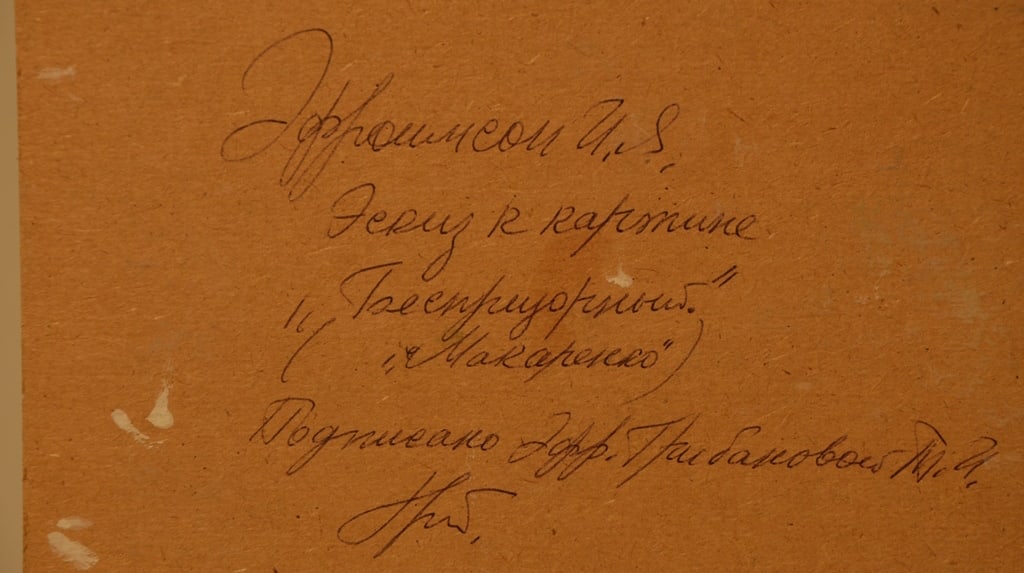 Эфроимсон И.Я.
Эскиз к картине
„Беспризорный."
( „Макаренко" )
Подписано Эфр. Грибановой Т.И.